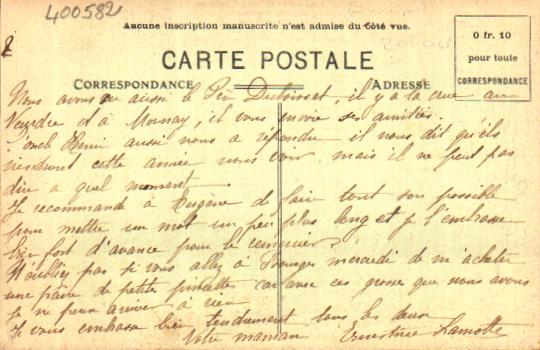 400582
Aucune inscription manuscrite n'est admise du côté vue.
CARTE POSTALE
CORRESPONDANCE
ADRESSE
0 fr. 10
pour toute
CORRESPONDANCE
2
Nous avons vu aussi le Duboisset, il y a la crue au
Veurdre et à Mornay, il vous envoie ses amitiés.
L'oncle Henri aussi nous a répondu il nous dit qu'ils
viendront cette année nous voir, mais il ne peut pas
dire a quel moment.
Je recommande à Eugène de faire tout son possible
pour mettre un mot un peu plus long et je l'embrasse
bien fort d'avance pour le remercier.
N'oubliez pas si vous allez à Bourges mercredi de m'acheter
une paire de petits car avec ces grosses que nous avons
je ne peux arriver à rien
Je vous embrasse bien tendrement tous les deux
Votre maman Ernestine Lamotte